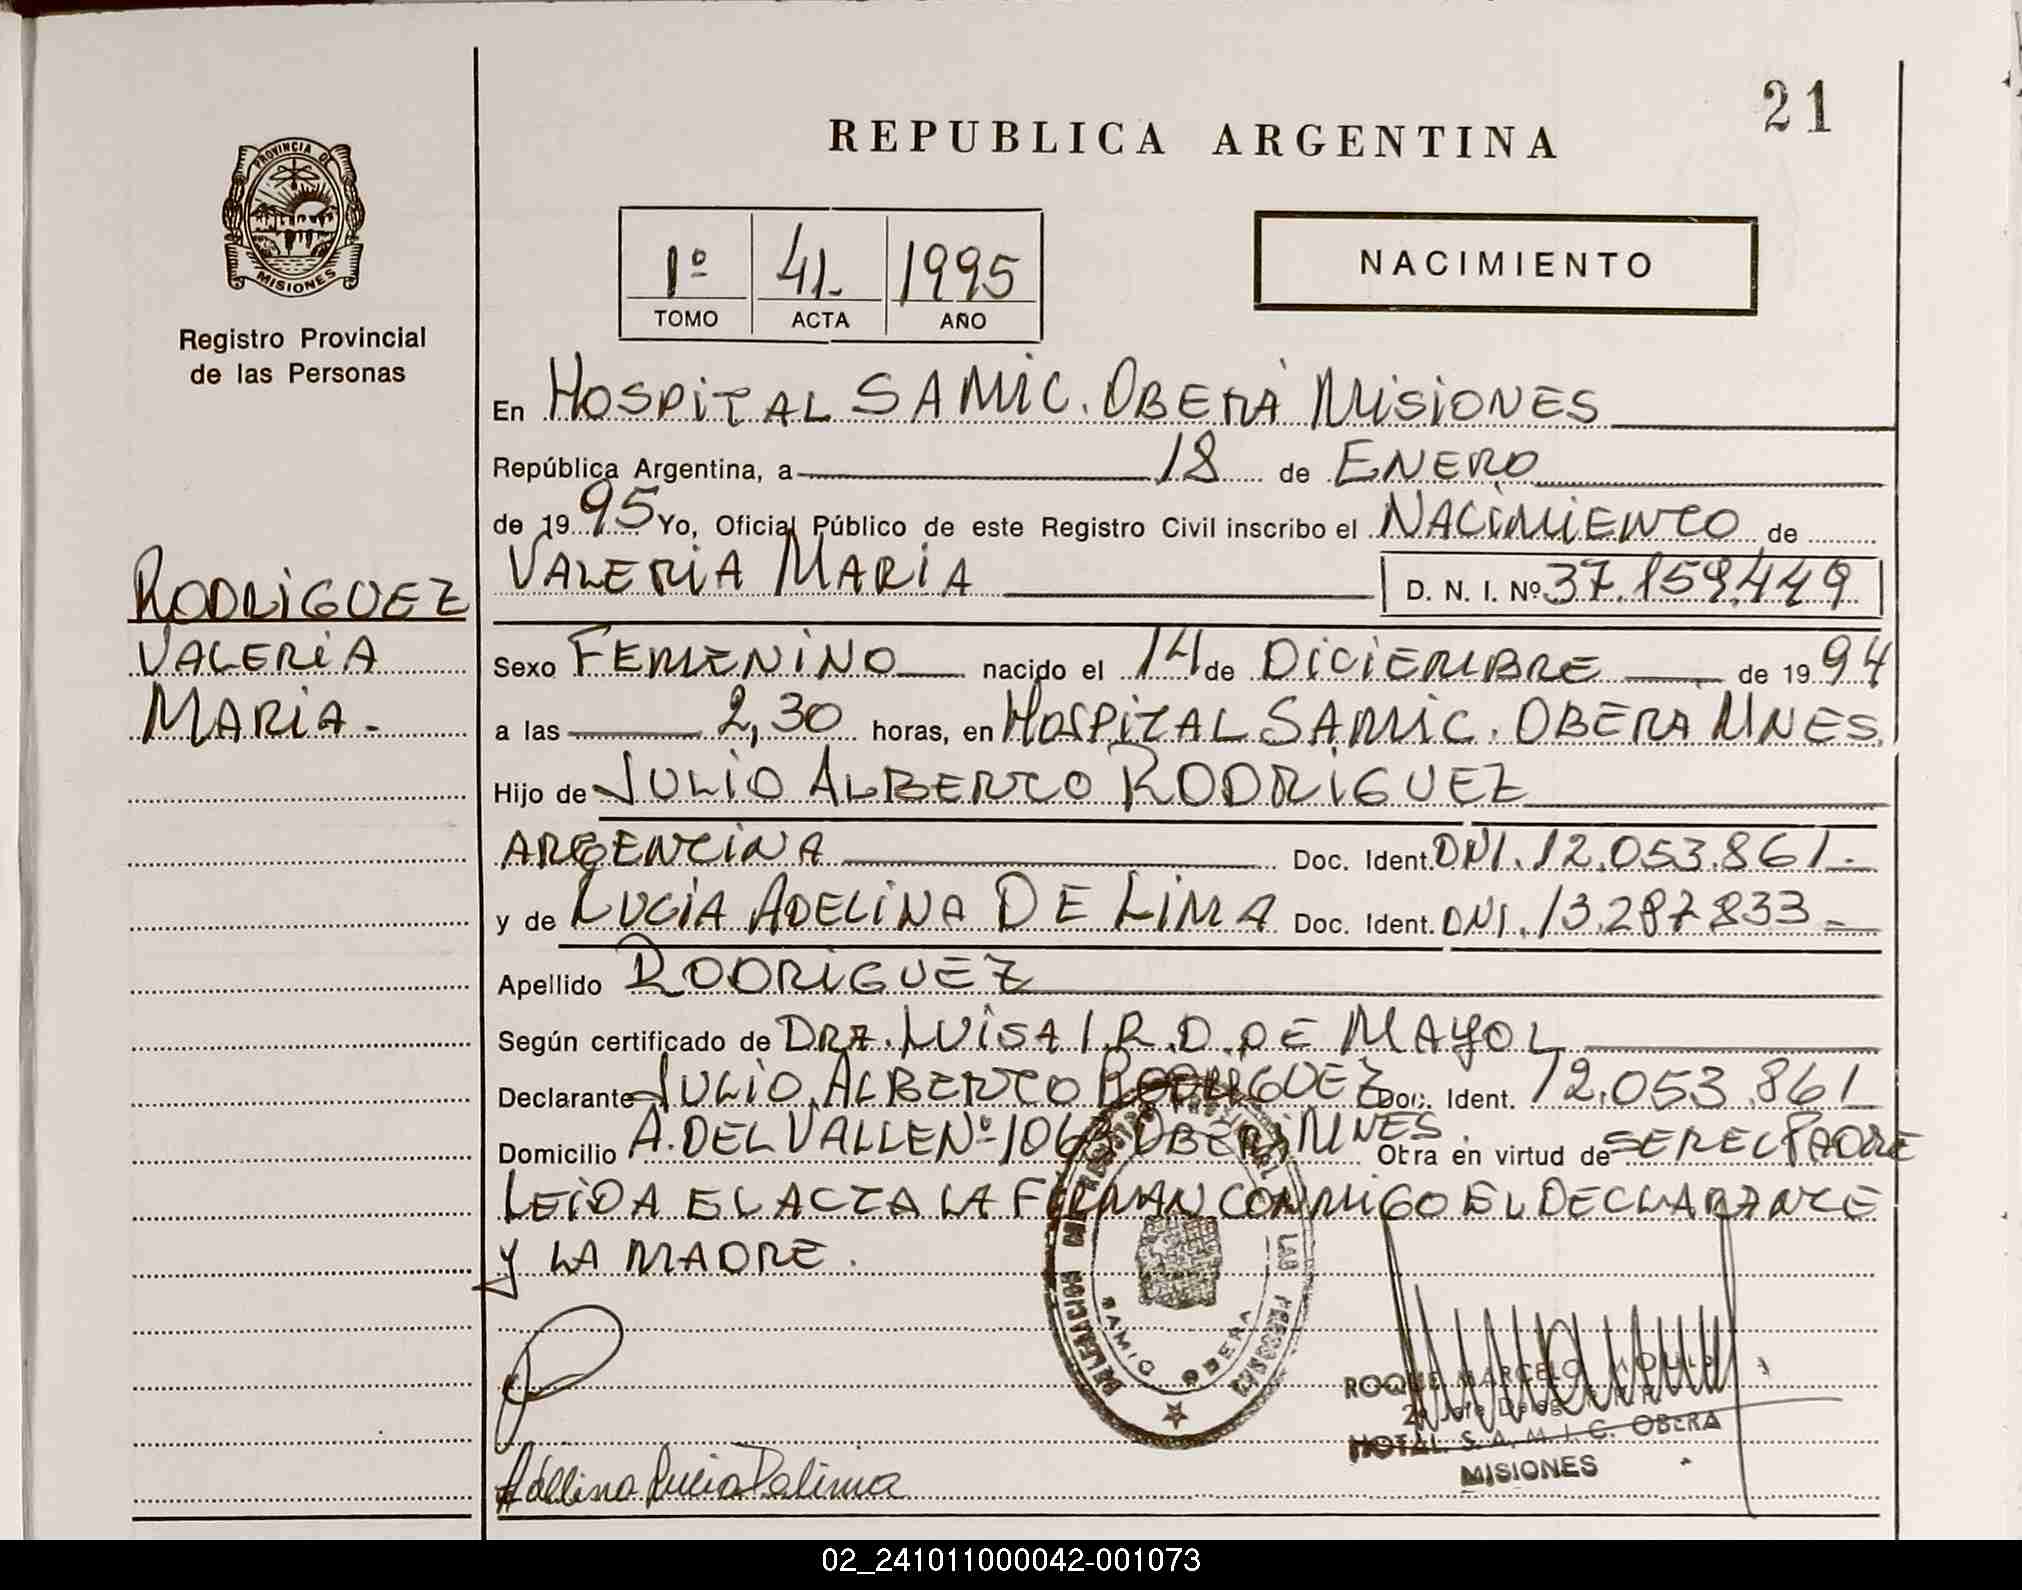 21
REPUBLICA ARGENTINA
PROVINCIA DE
MISIONES
Registro Provincial
de las Personas
1º 41- 1995
TOMO ACTA AÑO
NACIMIENTO
En HOSPITAL SAMIC. OBERÁ MISIONES
República Argentina, a 18 de ENERO
de 1995 Yo, Oficial Público de este Registro Civil inscribo el NACIMIENTO de
VALERIA MARIA D. N. I. Nº 37.159.449
RODRIGUEZ
VALERIA
MARIA-
Sexo FEMENINO nacido el 14 de DICIEMBRE de 1994
a las 2,30 horas, en HOSPITAL SAMIC. OBERA MNES.
Hijo de JULIO ALBERTO RODRIGUEZ
ARGENTINA Doc. Ident. DNI. 12.053.861-
y de LUCIA ADELINA DE LIMA Doc. Ident. DNI. 13.287.833-
Apellido RODRIGUEZ
Según certificado de DRA. LUISA I.R.D. DE MAYOL
Declarante JULIO ALBERTO RODRIGUEZ Doc. Ident. 12.053.861
Domicilio A. DEL VALLE Nº 1063 OBERA MNES. Obra en virtud de SER EL PADRE
LEIDA EL ACTA LA FIRMAN CONMIGO EL DECLARANTE
Y LA MADRE.
SAMIC OBERA
ROQUE MARCELO
HOTAL. S. A. M. I. C. OBERA
MISIONES
Adelina Lucia Delima
02_241011000042-001073